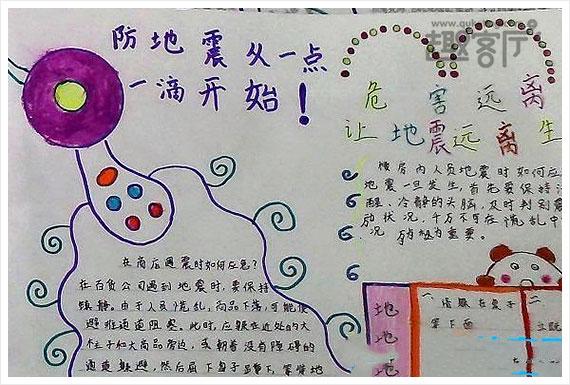 防地震从一点
一滴开始！
趣客厅
危害远离
让地震远离生
楼房内人员地震时如何应
地震一旦发生,首先要保持清
醒、冷静的头脑,及时判别震
动状况,千万不可在慌乱中
在商店遇震时如何应急?
在百货公司遇到地震时,要保持
镇静。由于人员慌乱,商品下落,可能使
避难通道阻塞。此时,应躲在近处的大
柱子和大商品旁边,或朝着没有障碍的
通道躲避,然后屈下身子蹲下,等待地
地
地
地
一
二